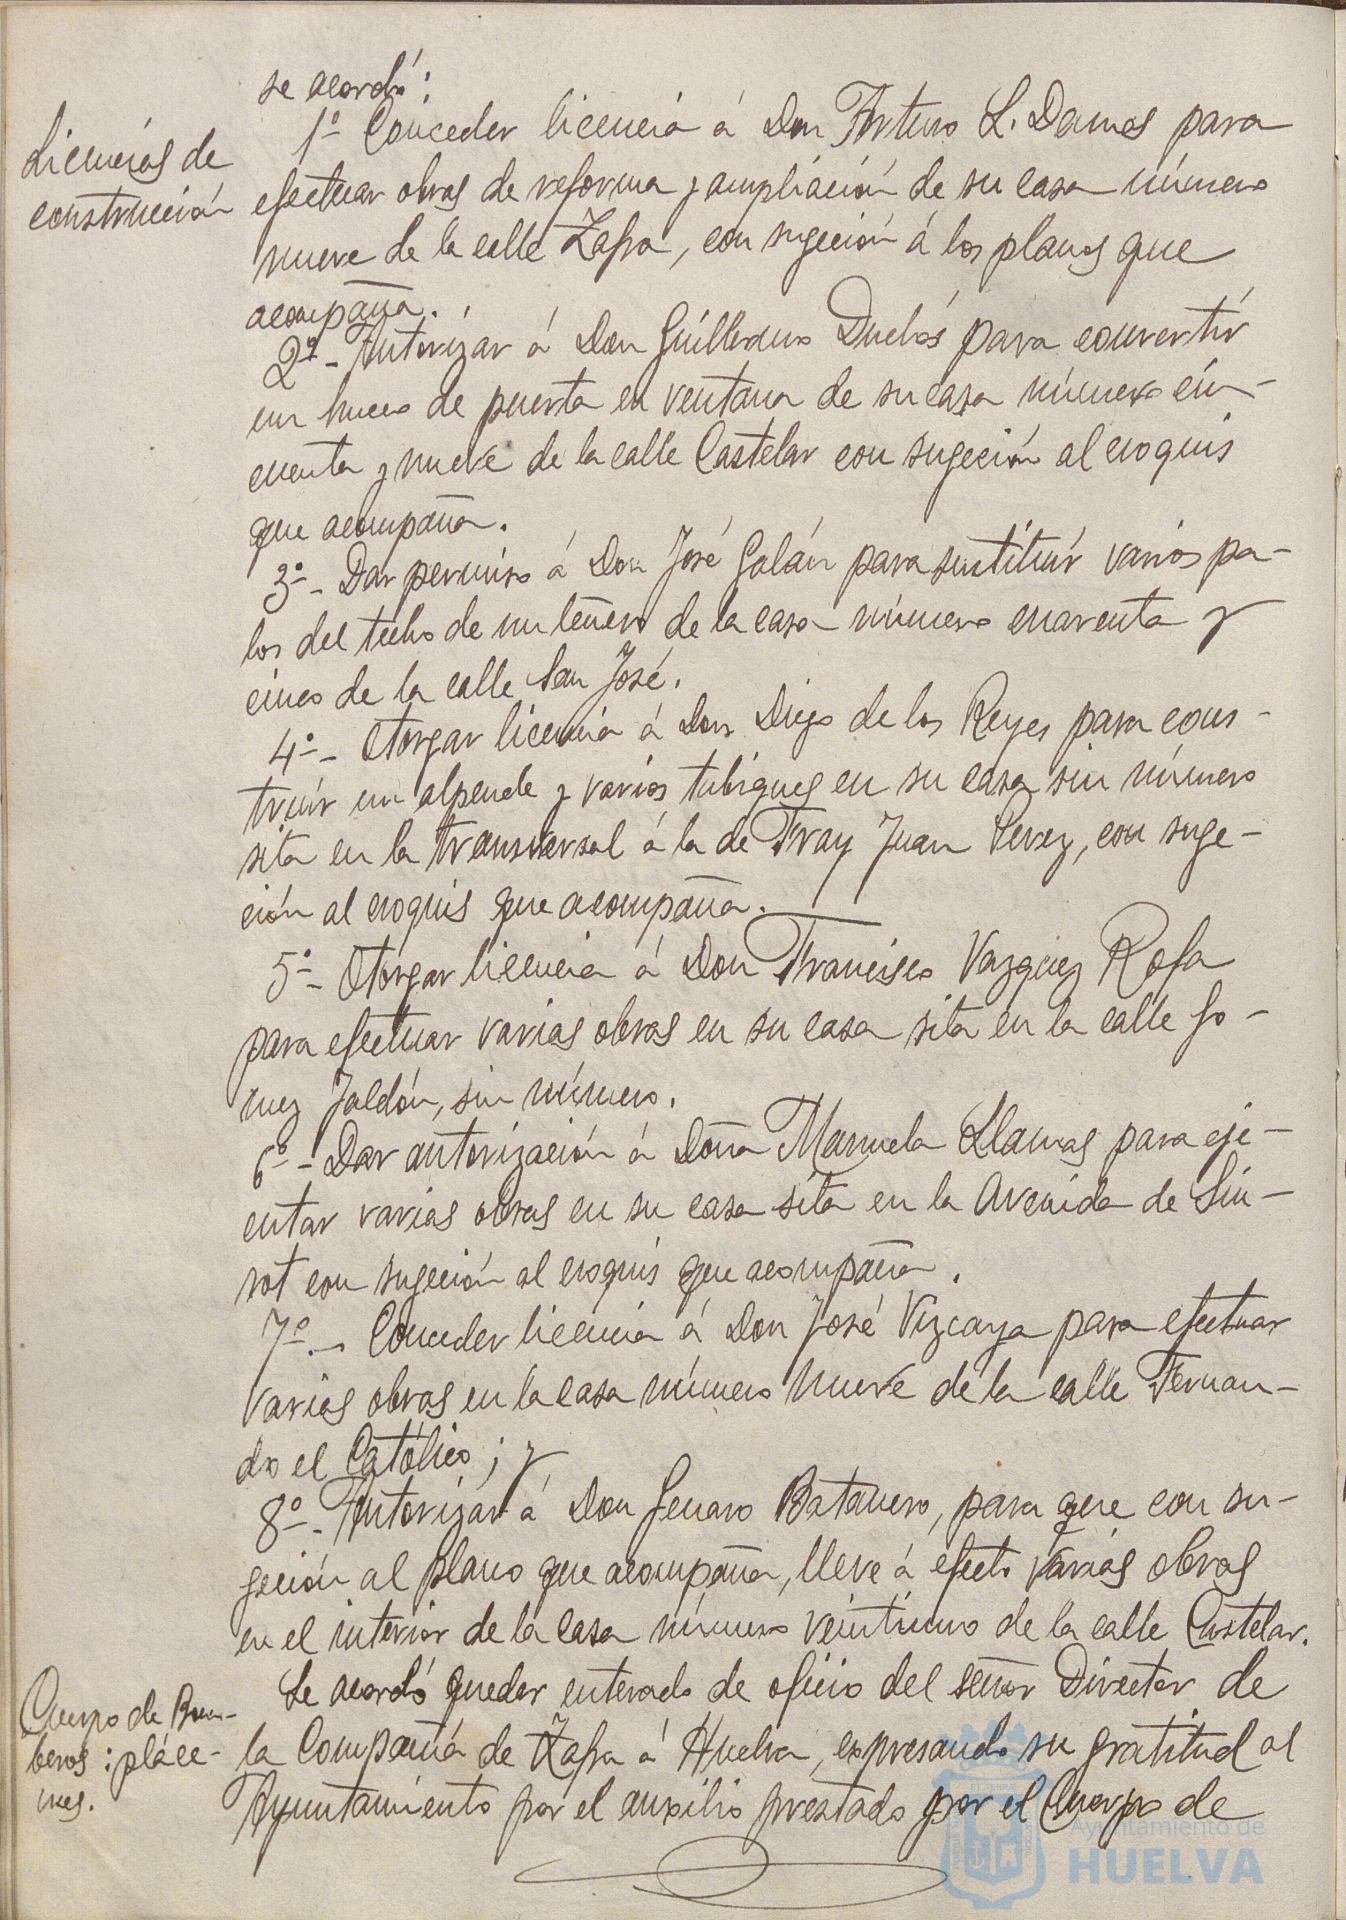 se acordó:
Licencias de
construcción
1º Conceder licencia á Don Arturo L. Damas para
efectuar obras de reforma y ampliación de su casa número
nueve de la calle Zafra, con sugeción á los planos que
acompaña.
2º - Autorizar á Don Guillermo Duclós para convertir
un hueco de puerta en ventana de su casa número cin-
cuenta y nueve de la calle Castelar con sugeción al croquis
que acompaña.
3º - Dar permiso á Don José Galán para sustituir varios pa-
los del techo de un leñero de la casa número cuarenta y
cinco de la calle San José.
4º - Otorgar licencia á Don Diego de los Reyes para cons-
truir un alpende y varios tabiques en su casa sin número
sita en la transversal á la de Fray Juan Perez, con suge-
ción al croquis que acompaña.
5º - Otorgar licencia á Don Francisco Vazquez Rofa
para efectuar varias obras en su casa sita en la calle Go-
mez Jaldón, sin número.
6º - Dar autorización á Doña Manuela Llamas para eje-
cutar varias obras en su casa sita en la Avenida de Sin-
rot con sugeción al croquis que acompaña.
7º. - Conceder licencia á Don José Vizcaya para efectuar
varias obras en la casa número nueve de la calle Fernan-
do el Católico; y
8º - Autorizar á Don Genaro Batanero, para que con su-
geción al plano que acompaña, lleve á efecto varias obras
en el interior de la casa número veintiuno de la calle Castelar.
Cuerpo de Bom-
beros: pláce-
mes.
Se acordó quedar enterado de oficio del señor Director de
la Compañía de Zafra á Huelva, expresando su gratitud al
Ayuntamiento por el auxilio prestado por el Cuerpo de
Ayuntamiento de
HUELVA